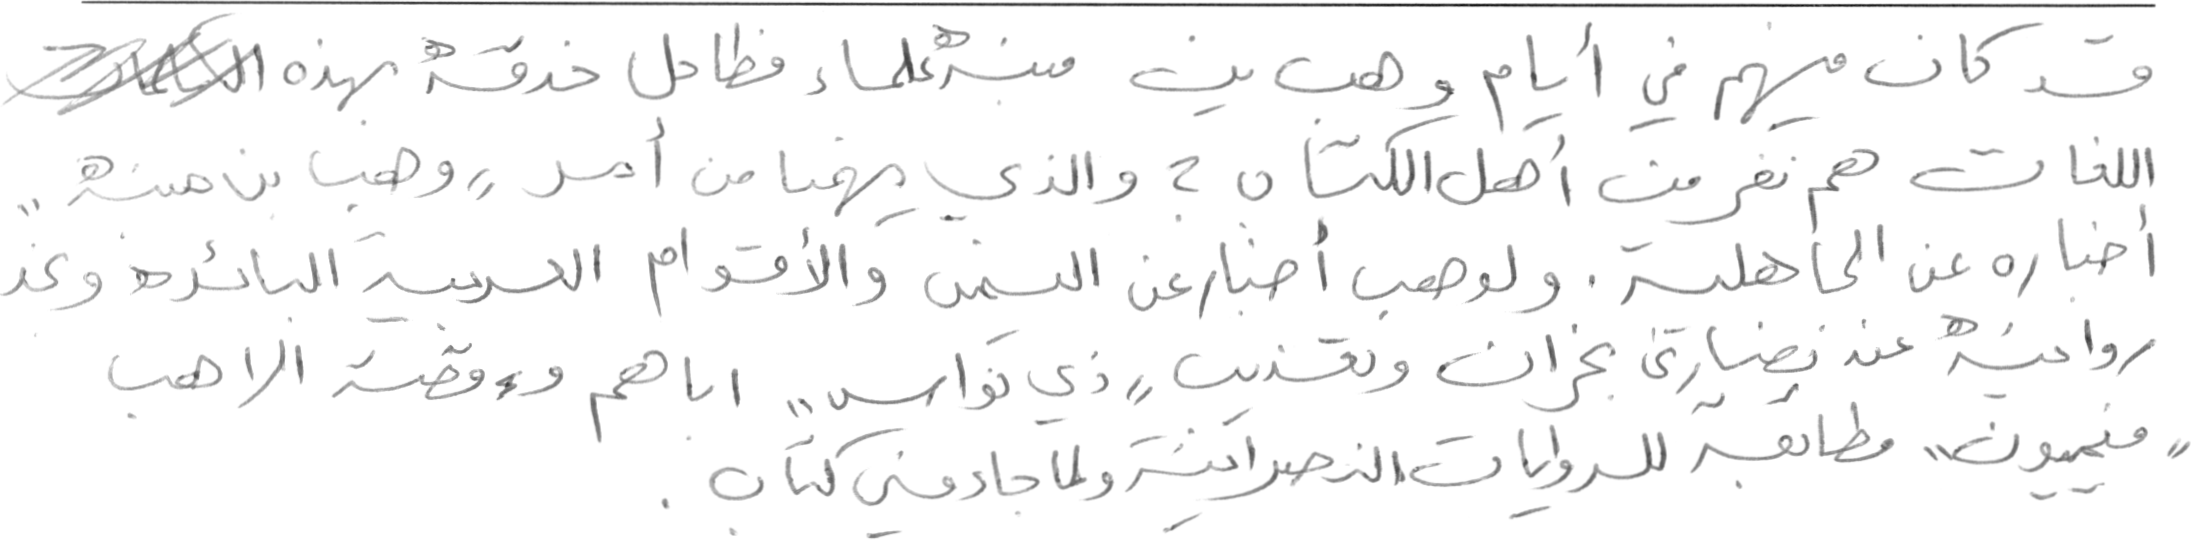 قد كان منهم في أيام وهب بن منبه علماء فطاحل حذقة بهذه
اللغات هم نفر من أهل الكتاب ؟ والذي يهمنا من أمر „وهب بن منبه"
أخباره عن الجاهلية . ولوهب أخبار عن اليمن والأقوام العربية البائدة وعند
روايته عند نصارى نجران وتعذيب „ذي نواس" اياهم و وقصة الراهب
„فيميون" مطابقة للروايات النصرانية ولما جاء في كتاب .